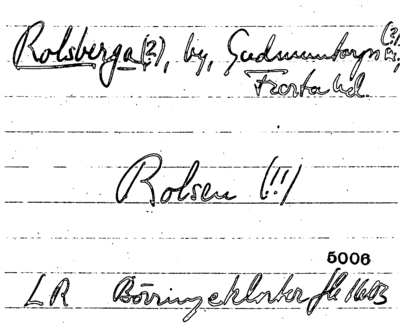 Rolsberga (?), by, Gudmuntorps (?) sn,
Frosta hd.
Rolsen (!!)
5006
LR Börringekloster fk 1603